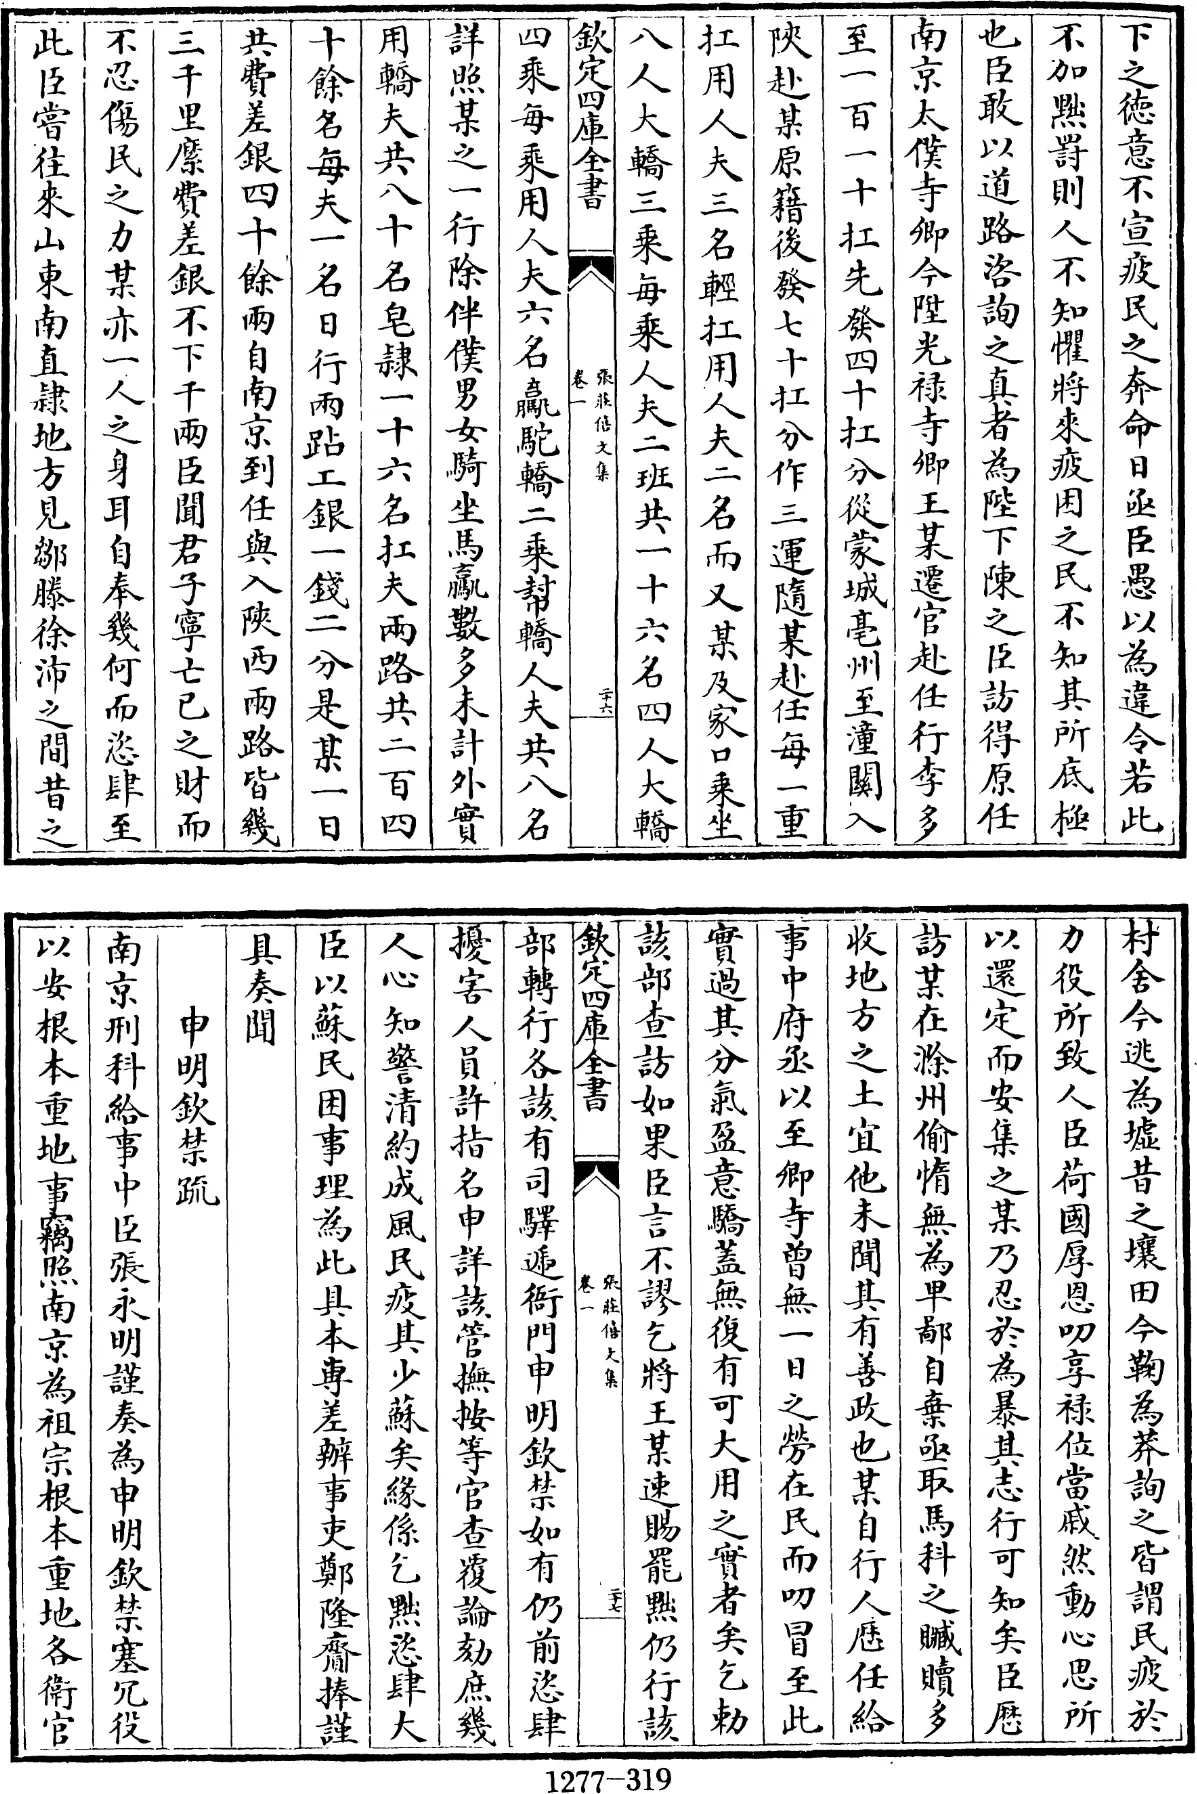 下之徳意不宣疲民之奔命日亟臣愚以為違令若此
不加㸃罸則人不知懼將來疲困之民不知其所底極
也臣敢以道路咨詢之真者為陛下陳之臣訪得原任
南京太僕寺卿今陞光禄寺卿王某遷官赴任行李多
至一百一十扛先發四十扛分從蒙城亳州至潼關入
陜赴某原籍後發七十扛分作三運隨某赴任每一重
扛用人夫三名輕扛用人夫二名而又某及家口乗坐
八人大轎三乗每乗人夫二班共一十六名四人大轎
欽定四庫全書
張莊僖文集
卷一
二十六
四乗每乗用人夫六名驘駝轎二乗幫轎人夫共八名
詳照某之一行除伴僕男女騎坐馬驘數多未計外實
用轎夫共八十名皂隷一十六名扛夫兩路共二百四
十餘名每夫一名日行兩跕工銀一錢二分是某一日
共費差銀四十餘兩自南京到任與入陜西兩路皆幾
三千里縻費差銀不下千兩臣聞君子寧亡已之財而
不忍傷民之力某亦一人之身耳自奉幾何而恣肆至
此臣嘗往來山東南直隷地方見鄒滕徐沛之間昔之
村舍今逃為墟昔之壤田今鞠為莽詢之皆謂民疲於
力役所致人臣荷國厚恩叨享禄位當戚然動心思所
以還定而安集之某乃忍於為暴其志行可知矣臣歴
訪某在滁州偷惰無為卑鄙自棄亟取馬科之贓贖多
收地方之土宜他未聞其有善政也某自行人歴任給
事中府丞以至卿寺曾無一日之勞在民而叨冒至此
實過其分氣盈意驕蓋無復有可大用之實者矣乞勅
該部查訪如果臣言不謬乞將王某速賜罷黜仍行該
欽定四庫全書
張莊僖文集
卷一
二十七
部轉行各該有司驛遞衙門申明欽禁如有仍前恣肆
擾害人員許指名申詳該管撫按等官查覆論劾庶幾
人心知警清約成風民疲其少蘇矣緣係乞黜恣肆大
臣以蘇民困事理為此具本専差辦事吏鄭隆齎捧謹
具奏聞
申明欽禁疏
南京刑科給事中臣張永明謹奏為申明欽禁塞冗役
以安根本重地事竊照南京為祖宗根本重地各衛官
1277-319